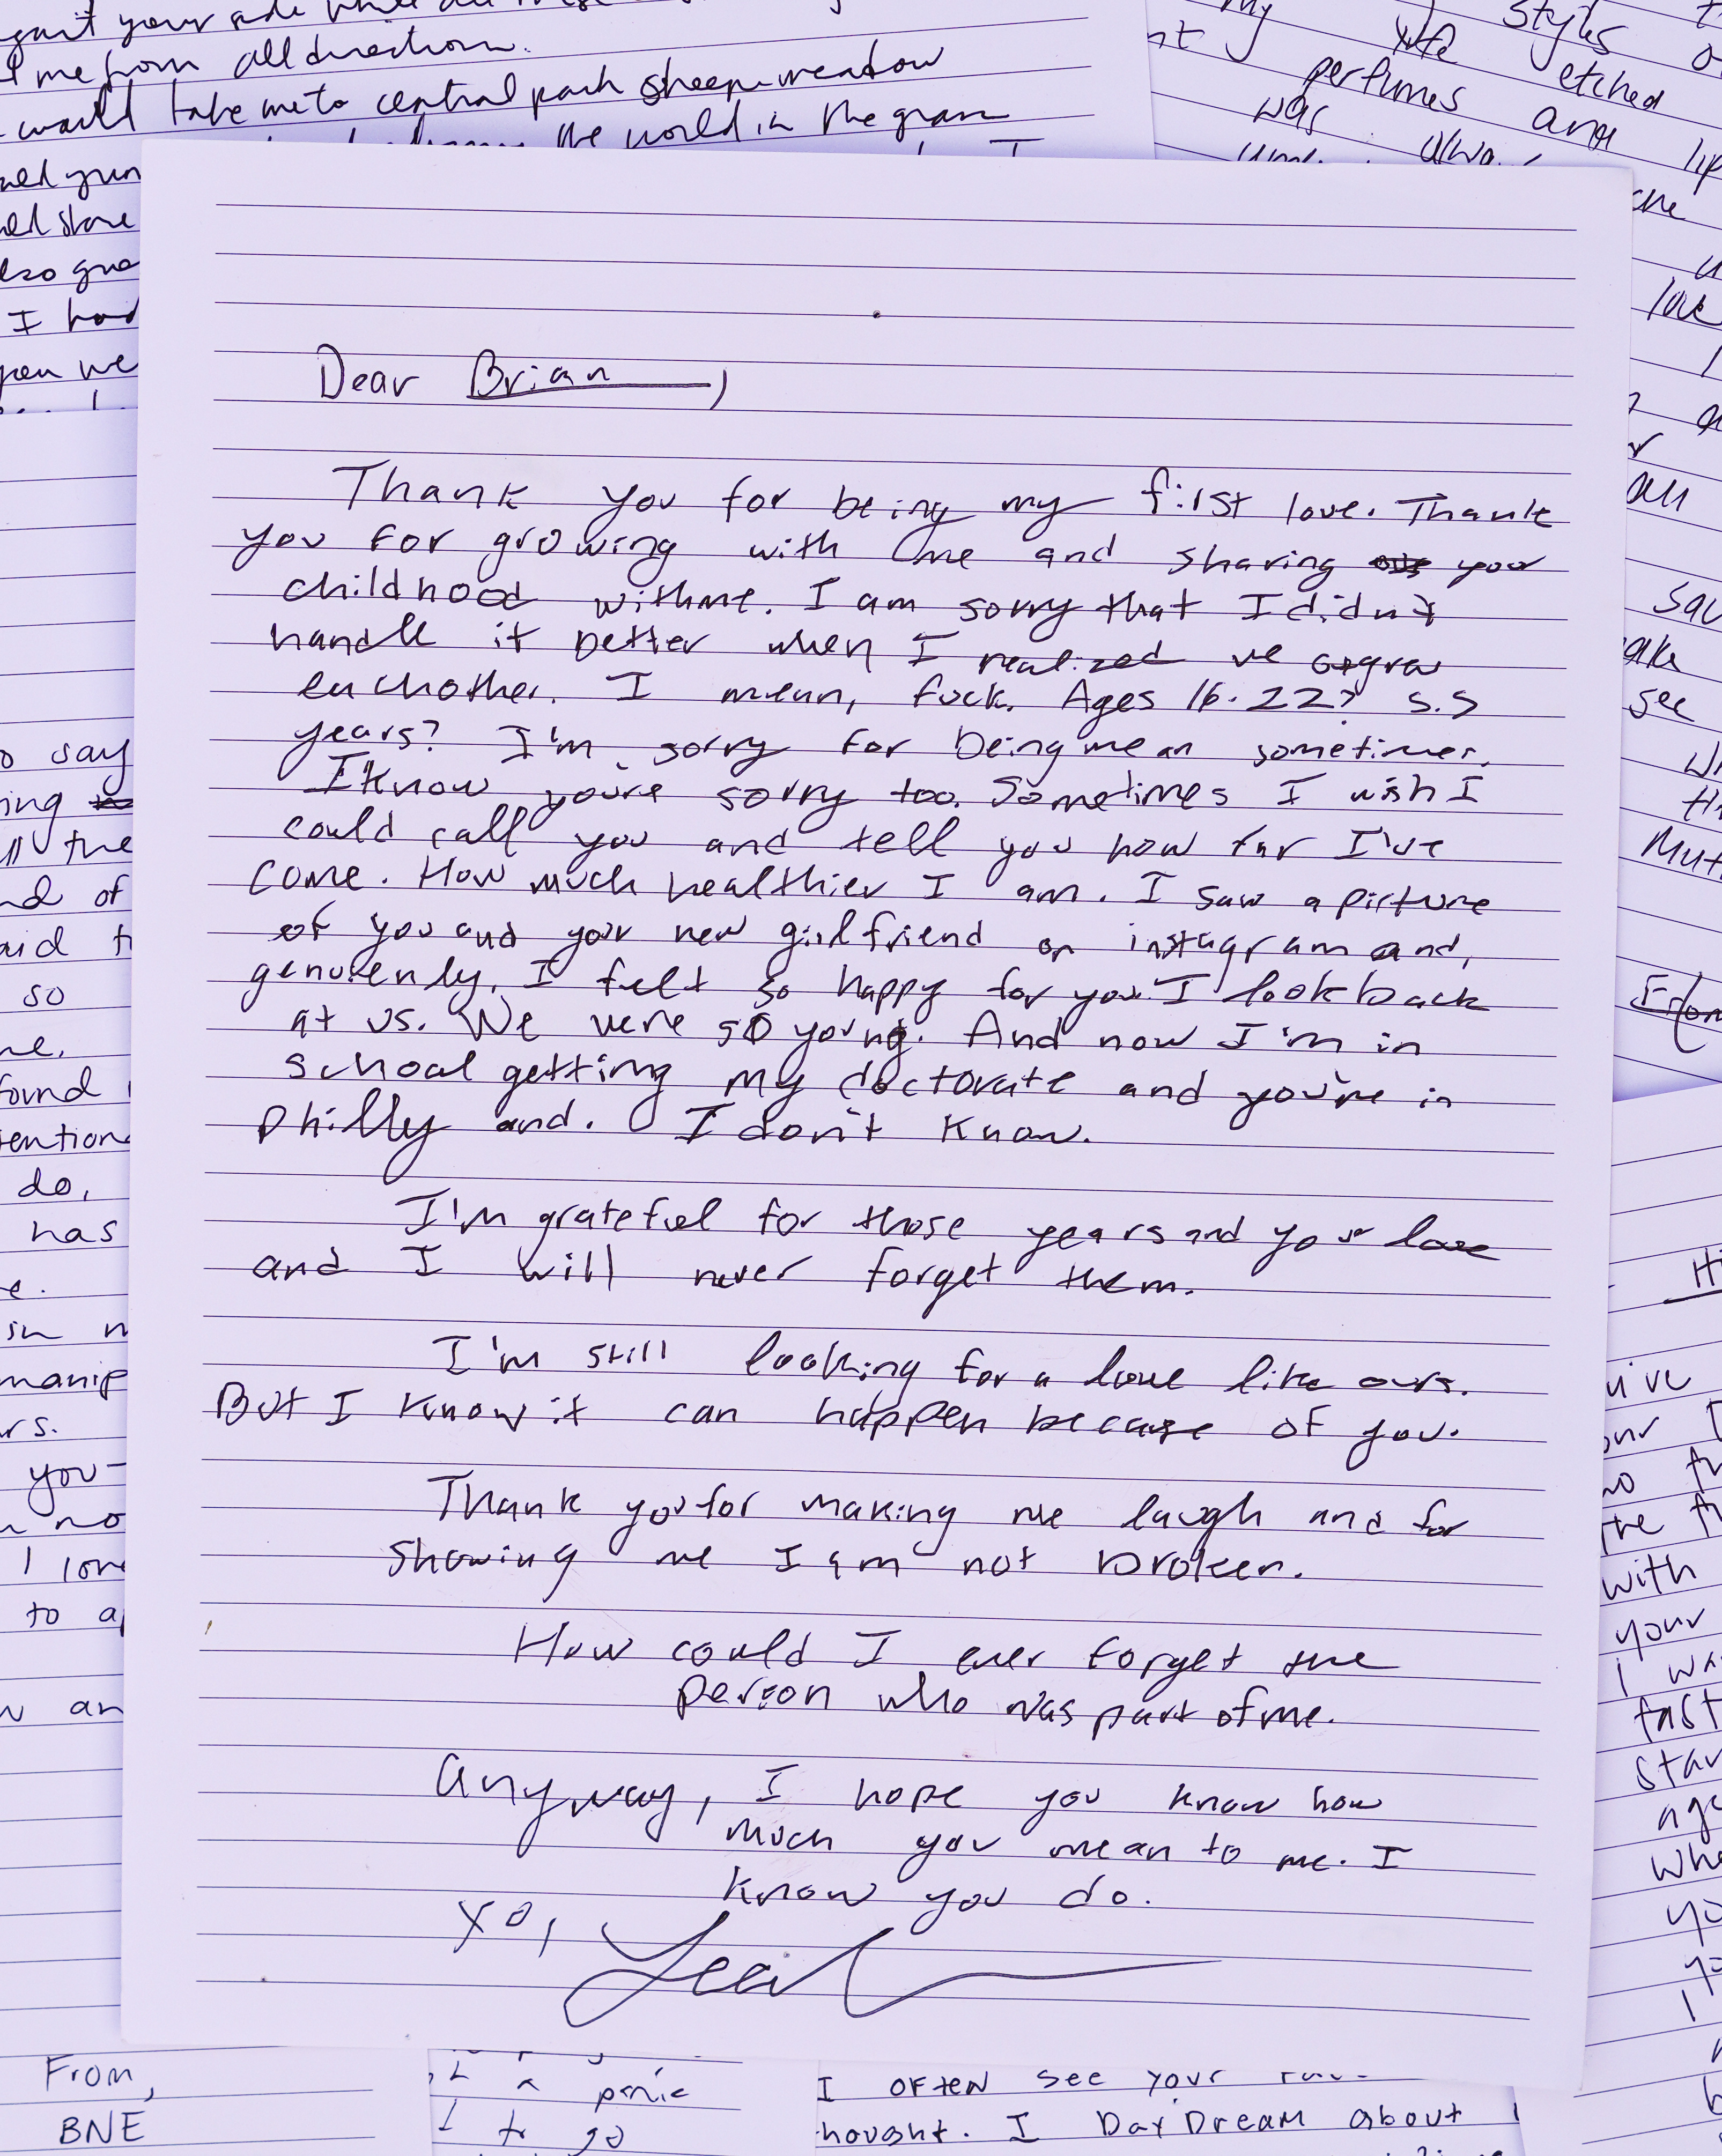 me from all direction.
would take me to central park sheep meadow
the world in the grass
I had
o say
ing
ll the
nd of
aid t
so
found
do,
has
in
manip
you-
no
I love
to a
an
styles
etched
perfumes and
was
Dear Brian,
Thank you for being my first love. Thank
you for growing with me and sharing your
childhood with me. I am sorry that I didn't
handle it better when I realized we
eachother. I mean, fuck. Ages 16-22? 5.5
years? I'm sorry for being mean sometimes.
I know you're sorry too. Sometimes I wish I
could call you and tell you how far I've
come. How much healthier I am. I saw a picture
of you and your new girlfriend on instagram and,
genuienly, I felt so happy for you. I look back
at us. We were so young. And now I'm in
school getting my doctorate and you're in
philly and. I don't know.
I'm grateful for those years and your love
and I will never forget them.
I'm still looking for a love like ours.
But I know it can happen because of you.
Thank you for making me laugh and for
showing me I am not broken.
How could I ever forget the
person who was part of me.
Anyway, I hope you know how
much you mean to me. I
know you do.
xo,
see
with
your
I wa
fast
star
From,
BNE
a panic
to go
I OFTEN SEE YOUR
hought. I DAYDREAM about